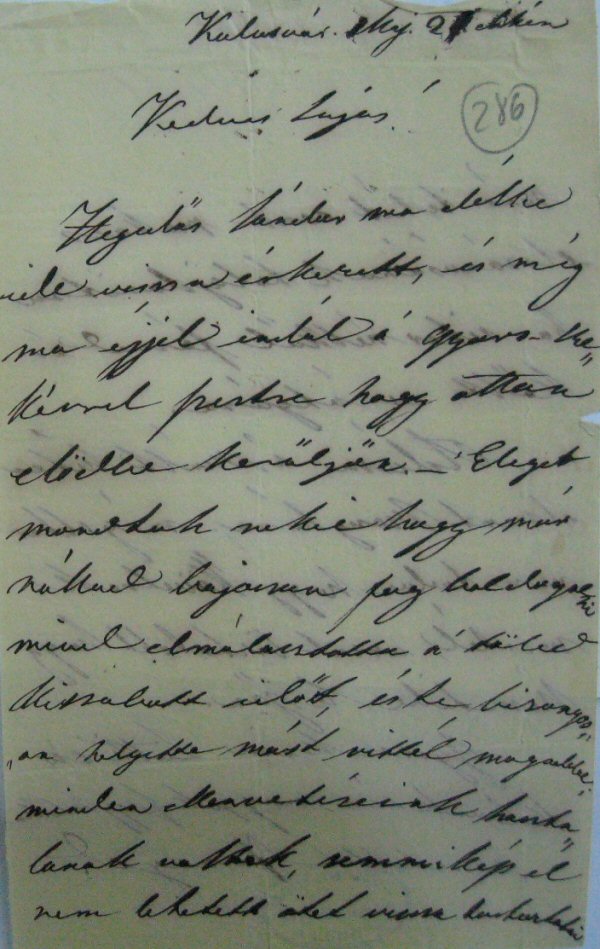 Kolosvár. Maj. 21 dikén
286
Kedves Lajos!
Hegedűs Sándor ma délbe
ide vissza érkezett, és még
ma éjjel indul á gyors-ke„
kével pestre hogy ottan
elődbe kerűljön. — Eleget
mondtuk nekie hogy már
nállad bajossan fog boldogulni
mivel elmúlasztotta á tőled
kiszabott időt, és te bizonyos„
„an helyette mást vittél magaddal,
minden ellenvetéseink haszta„
lanok voltak, semmikép el
nem lehetett őtet vissza tartoztatni